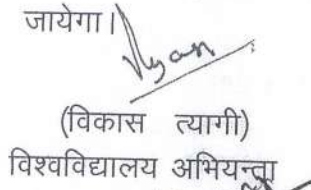 जायेगा।
(विकास त्यागी)
विश्वविद्यालय अभियन्ता